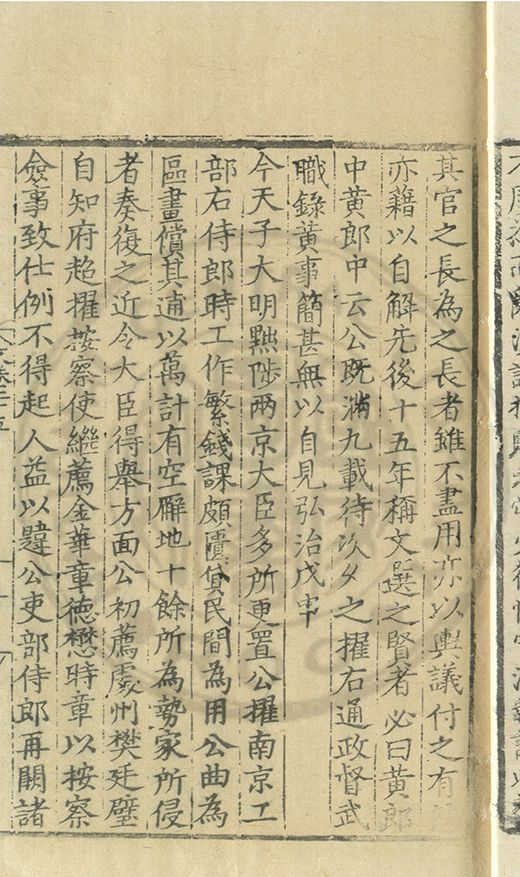 其官之長為之長者雖不盡用亦以輿議付之有
亦藉以自解先後十五年稱文選之賢者必曰黃郎
中黃郎中云公既滿九載待次久之擢右通政督武
職錄黃事簡甚無以自見弘治戊申
今天子大明黜陟兩京大臣多所更置公擢南京工
部右侍郎時工作繁錢課頗匱貸民間為用公曲為
區畫償其逋以萬計有空廨地十餘所為勢家所侵
者奏復之近令大臣得舉方面公初薦處州樊廷璧
自知府超擢按察使繼薦金華章德懋時章以按察
僉事致仕例不得起人益以韙公吏部侍郎再闕諸